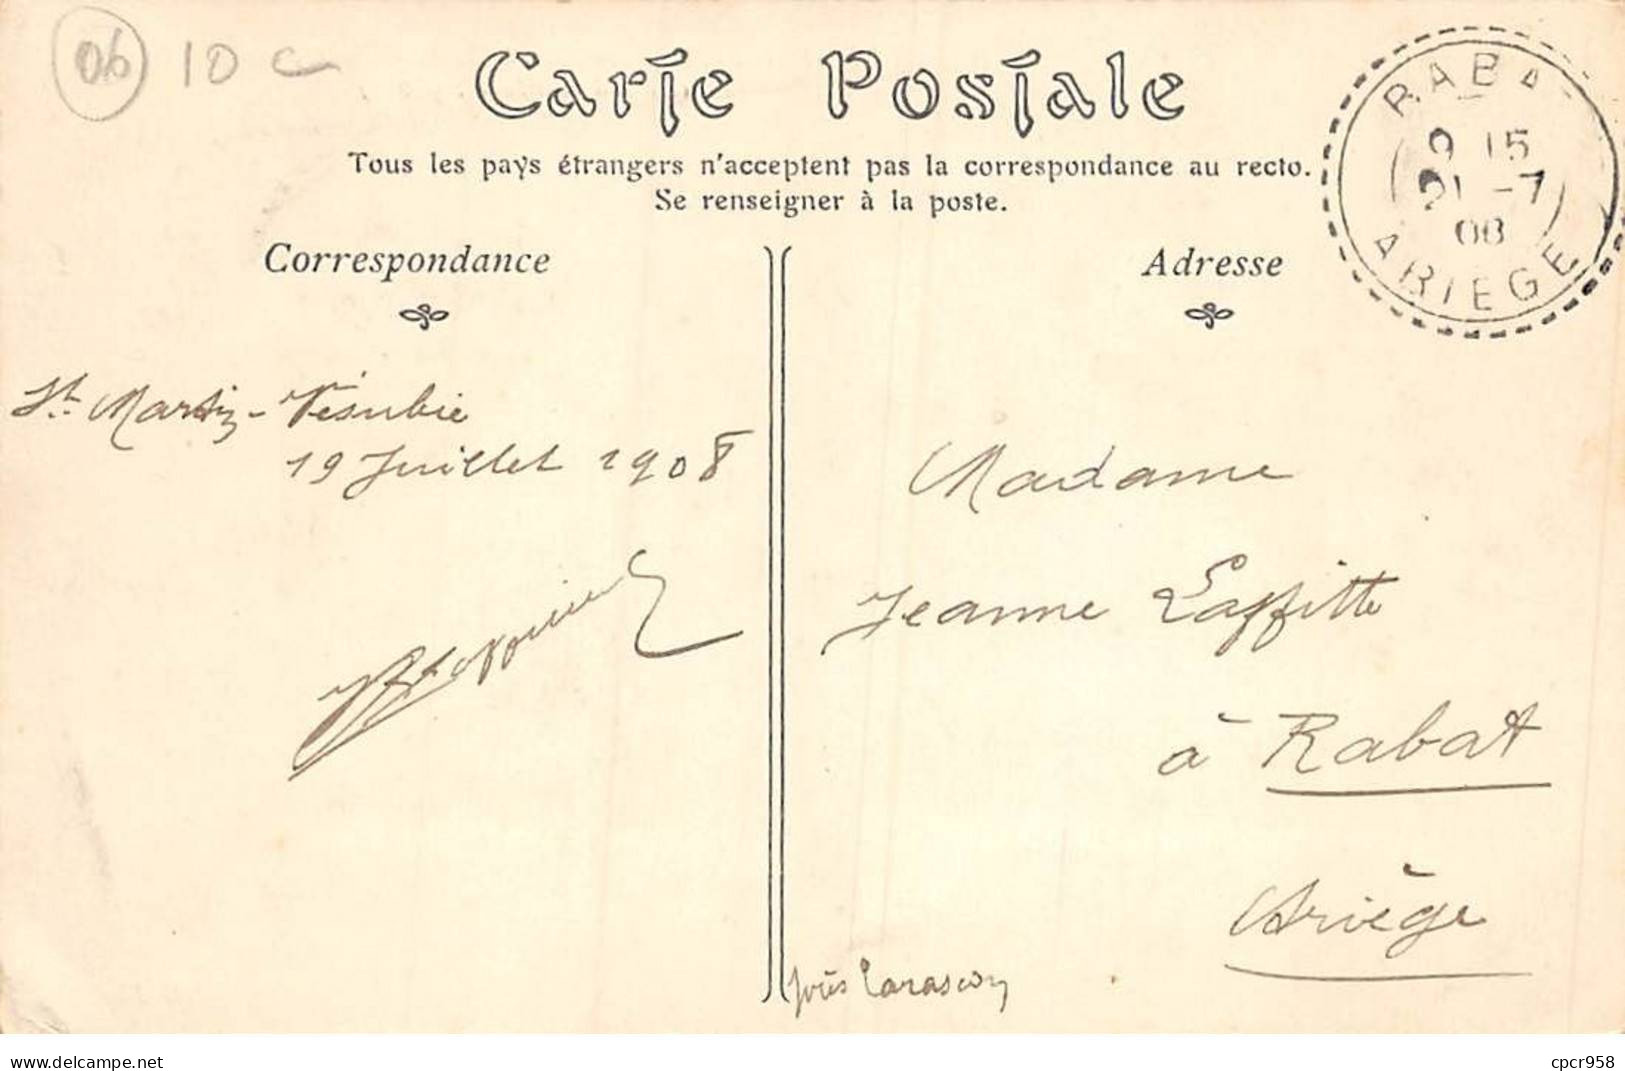 06 10 c
Carte Postale
Tous les pays étrangers n'acceptent pas la correspondance au recto.
Se renseigner à la poste.
RABA
15
21 -7
08
ARIEGE
Correspondance
Adresse
St. Martin-Vésubie
19 Juillet 1908
Madame
Jeanne Laffitte
à Rabat
Ariège
près Tarascon
www.delcampe.net
cpcr958